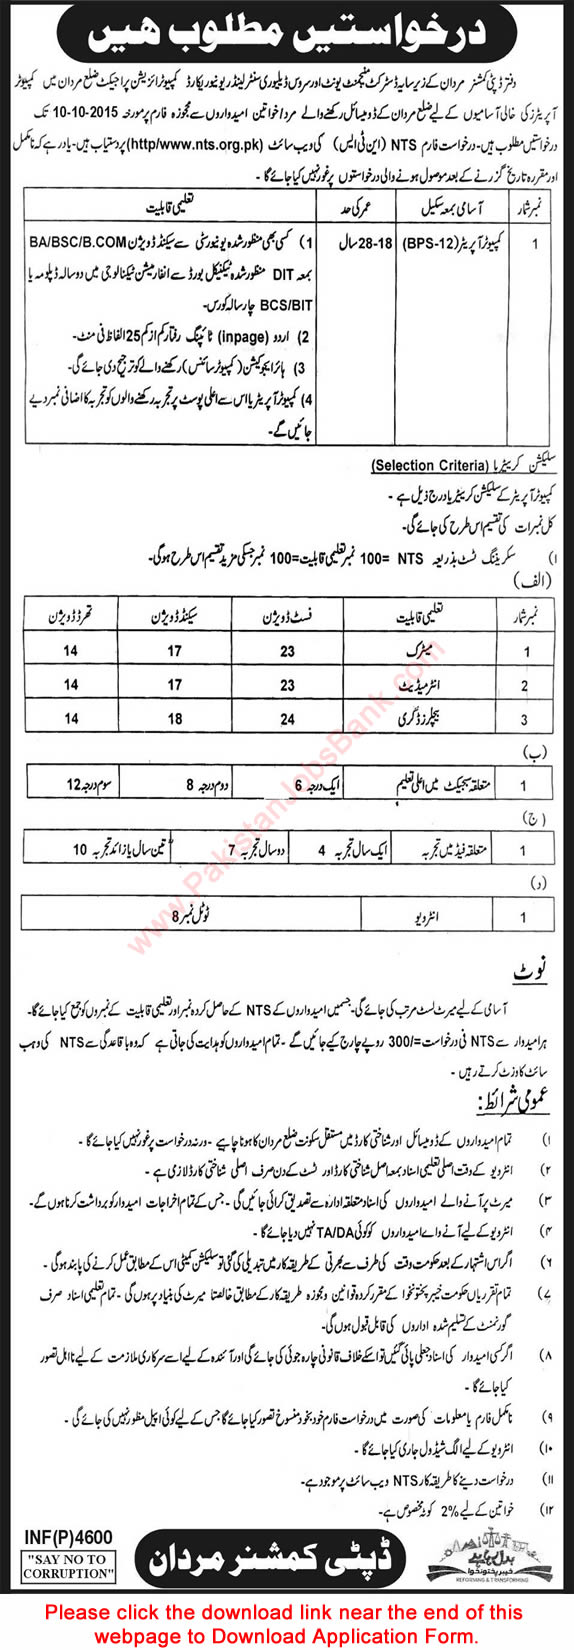 درخواستیں مطلوب ھیں
دفتر ڈپٹی کمشنر مردان کے زیر سایہ ڈسٹرکٹ منیجمنٹ یونٹ اور سروس ڈیلیوری سنٹر لینڈ ریونیو ریکارڈ کمپیوٹرائزیشن پراجیکٹ ضلع مردان میں کمپیوٹر
آپریٹرز کی خالی آسامیوں کے لیے ضلع مردان کے ڈومیسائل رکھنے والے مرد/خواتین امیدواروں سے مجوزہ فارم پر مورخہ 10-10-2015 تک
درخواستیں مطلوب ہیں۔ درخواست فارم NTS (این ٹی ایس) کی ویب سائٹ (http/www.nts.org.pk) پر دستیاب ہیں۔ یاد رہے کہ نامکمل
اور مقررہ تاریخ گزرنے کے بعد موصول ہونے والی درخواستوں پر غور نہیں کیا جائے گا۔
نمبر شمار آسامی بمعہ سکیل عمر کی حد تعلیمی قابلیت
1 کمپیوٹر آپریٹر (BPS-12) 18-28 سال 1) کسی بھی منظور شدہ یونیورسٹی سے سیکنڈ ڈویژن BA/BSC/B.COM
بمعہ DIT منظور شدہ ٹیکنیکل بورڈ سے انفارمیشن ٹیکنالوجی میں دو سالہ ڈپلومہ یا
BCS/BIT چار سالہ کورس۔
2) اردو (inpage) ٹائپنگ رفتار کم از کم 25 الفاظ فی منٹ۔
3) ہائر ایجوکیشن (کمپیوٹر سائنس) رکھنے والے کو ترجیح دی جائے گی۔
4) کمپیوٹر آپریٹر یا اس سے اعلیٰ پوسٹ پر تجربہ رکھنے والوں کو تجربہ کا اضافی نمبر دیے
جائیں گے۔
سلیکشن کرائیٹریا (Selection Criteria)
کمپیوٹر آپریٹر کے سلیکشن کرائیٹریا درج ذیل ہے۔
کل نمبرات کی تقسیم اس طرح کی جائے گی۔
۱) سکریننگ ٹسٹ بذریعہ NTS =100 نمبر تعلیمی قابلیت=100 نمبر جسکی مزید تقسیم اس طرح ہوگی۔
(الف)
نمبر شمار تعلیمی قابلیت فسٹ ڈویژن سیکنڈ ڈویژن تھرڈ ڈویژن
1 میٹرک 23 17 14
2 انٹرمیڈیٹ 23 17 14
3 بیچلرز ڈگری 24 18 14
(ب)
1 متعلقہ سبجیکٹ میں اعلیٰ تعلیم ایک درجہ 6 دوم درجہ 8 سوم درجہ 12
(ج)
1 متعلقہ فیلڈ میں تجربہ ایک سال تجربہ 4 دو سال تجربہ 7 تین سال یا زائد تجربہ 10
(د)
1 انٹرویو ٹوٹل نمبر 8
نوٹ
آسامی کے لیے میرٹ لسٹ مرتب کی جائے گی۔ جسمیں امیدواروں کے NTS کے حاصل کردہ نمبر اور تعلیمی قابلیت کے نمبروں کو جمع کیا جائے گا۔
ہر امیدوار سے NTS فی درخواست =/300 روپے چارج کیے جائیں گے۔ تمام امیدواروں کو ہدایت کی جاتی ہے کہ وہ باقاعدگی سے NTS کی ویب
سائٹ کا وزٹ کرتے رہیں۔
عمومی شرائط:
۱) تمام امیدواروں کے ڈومیسائل اور شناختی کارڈ میں مستقل سکونت ضلع مردان کا ہونا چاہیے۔ ورنہ درخواست پر غور نہیں کیا جائے گا۔
۲) انٹرویو کے وقت اصلی تعلیمی اسناد بمعہ اصل شناختی کارڈ اور ٹسٹ کے دن صرف اصلی شناختی کارڈ لازمی ہے۔
۳) میرٹ پر آنے والے امیدواروں کی اسناد متعلقہ ادارہ سے تصدیق کرائی جائیں گی۔ جس کے تمام اخراجات امیدوار کو برداشت کرنا ہوں گے۔
۴) انٹرویو کے لیے آنے والے امیدواروں کو کوئی TA/DA نہیں دیا جائے گا۔
۶) اگر اس اشتہار کے بعد حکومت وقت کی طرف سے بھرتی کے طریقہ کار میں تبدیلی کی گئی تو سلیکشن کمیٹی اس کے مطابق عمل کرنے کی پابند ہوگی۔
۷) تمام تقرریاں حکومت خیبر پختونخوا کے مقرر کردہ قوانین و مجوزہ طریقہ کار کے مطابق خالصتا میرٹ کی بنیاد پر ہوں گی۔ تمام تعلیمی اسناد صرف
گورنمنٹ کے تسلیم شدہ اداروں کی قابل قبول ہوں گی۔
۸) اگر کسی امیدوار کی اسناد جعلی پائی گئیں تو اسکے خلاف قانونی چارہ جوئی کی جائے گی اور آئندہ کے لیے اسے سرکاری ملازمت کے لیے نااہل تصور
کیا جائے گا۔
۹) نامکمل فارم یا معلومات کی صورت میں درخواست فارم خود بخود منسوخ تصور کیا جائے گا جس کے لیے کوئی اپیل منظور نہیں کی جائے گی۔
۱۰) انٹرویو کے لیے الگ شیڈول جاری کیا جائے گا۔
۱۱) درخواست دینے کا طریقہ کار NTS ویب سائٹ پر موجود ہے۔
۱۲) خواتین کے لیے 2% کوٹہ مخصوص ہے۔
INF(P)4600
"SAY NO TO
CORRUPTION"
ڈپٹی کمشنر مردان
خیبر پختونخوا
REFORMING & TRANSFORMING
www.PakistanJobsBank.com
Please click the download link near the end of this
webpage to Download Application Form.